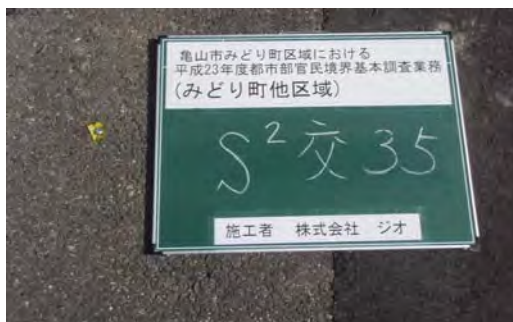 亀山市みどり町区域における
平成23年度都市部官民境界基本調査業務
(みどり町他区域)
S²交35
施工者　株式会社　ジオ